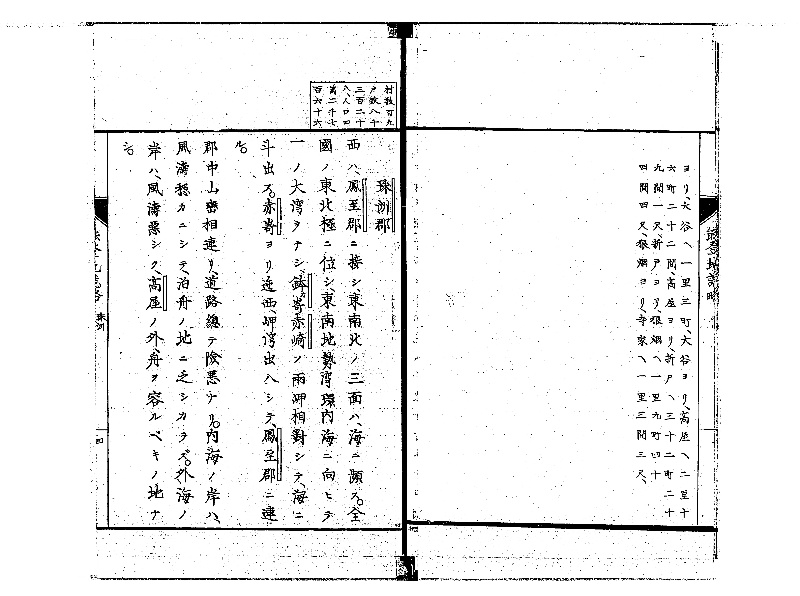 ヨリ、大谷ヘ一里三町、大谷ヨリ、高屋ヘ二里十
六町二十二間、高屋ヨリ折戸ヘ三十二町二十
九間一尺、折戸ヨリ、狼烟ヘ一里九町四十
四間四尺、狼烟ヨリ、寺家ヘ一里三間三尺、
能登地誌略
村数百九
戸数八千
三百二十
八、人口四
萬二千七
百六十六
珠洲郡
西ハ、鳳至郡ニ接シ、東南北ノ三面ハ、海ニ瀕ス。全
國ノ東北極ニ位シ、東南地勢湾環内海ニ向ヒテ
一ノ大湾ヲナシ、鉢﨑赤崎ノ両岬相對シテ、海ニ
斗出ス。赤﨑ヨリ迤西、岬湾出入シテ、鳳至郡ニ連
ル。
郡中山巒相連リ、道路總テ険悪ナリ。内海ノ岸ハ、
風濤穏カニシテ、泊舟ノ地ニ乏シカラズ。外海ノ
岸ハ、風濤悪シク、高屋ノ外、舟ヲ容ルベキノ地ナ
シ。
珠洲